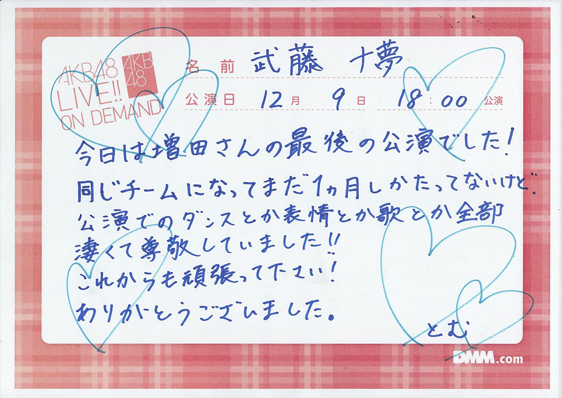 AKB48
LIVE!!
ON DEMAND
AKB
48
名前 武藤 十夢
公演日 12月 9日 18:00 公演
今日は増田さんの最後の公演でした!
同じチームになってまだ1ヵ月しかたってないけど、
公演でのダンスとか表情とか歌とか全部
凄くて尊敬していました!!
これからも頑張って下さい!
ありがとうございました。
とむ
DMM.com